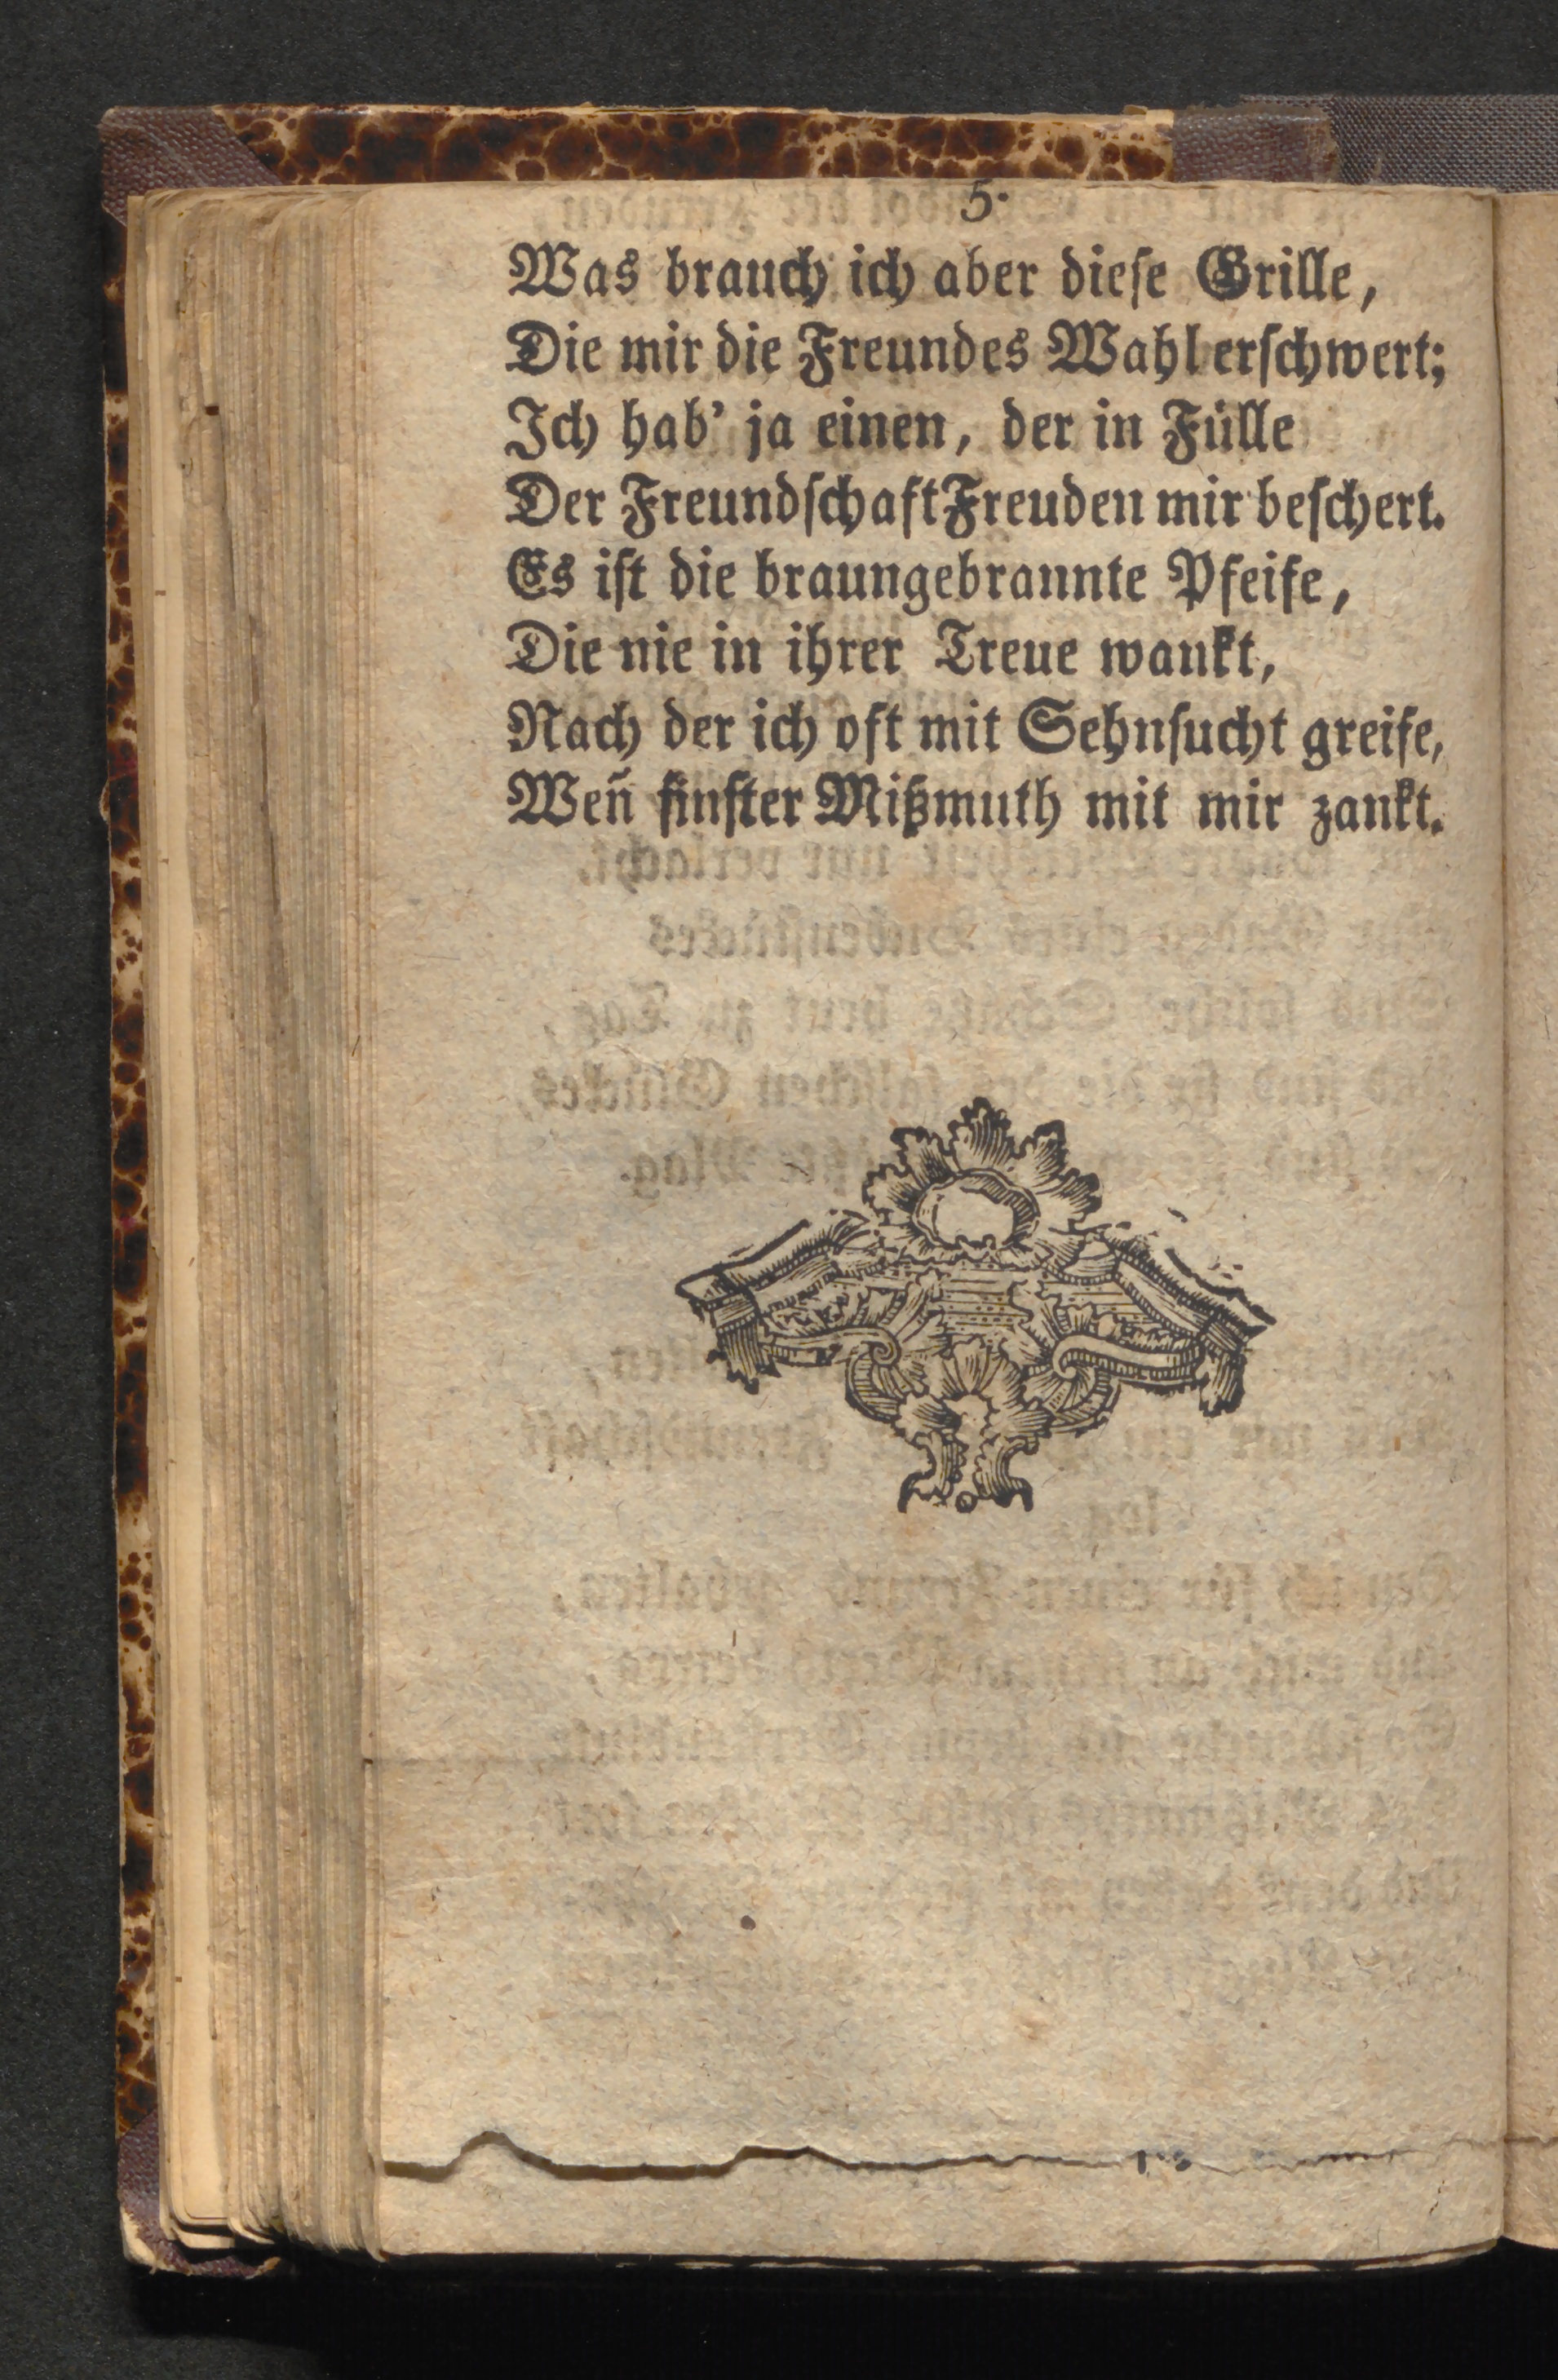 5.
Was brauch ich aber dieſe Grille,
Die mir die Freundes Wahl erſchwert;
Ich hab' ja einen, der in Fülle
Der Freundſchaft Freuden mir beſchert.
Es iſt die braungebrannte Pfeife,
Die nie in ihrer Treue wankt,
Nach der ich oft mit Sehnſucht greife,
Weñ finſter Mißmuth mit mir zankt.